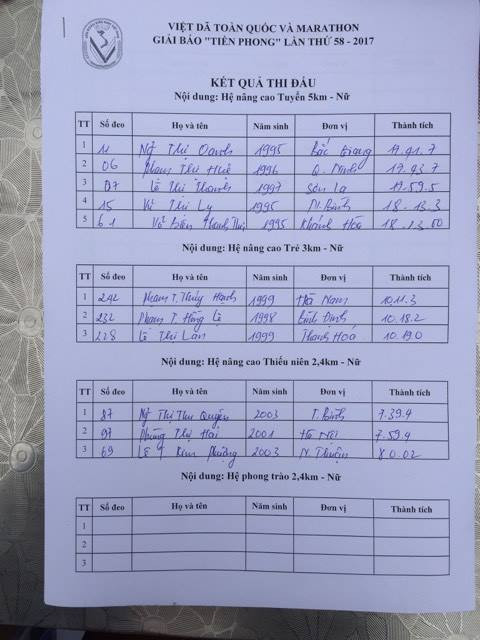 VIỆT DÃ TOÀN QUỐC VÀ MARATHON
GIẢI BÁO "TIỀN PHONG" LẦN THỨ 58 - 2017
KẾT QUẢ THI ĐẤU
Nội dung: Hệ nâng cao Tuyển 5km - Nữ
TT Số đeo Họ và tên Năm sinh Đơn vị Thành tích
1 11 Ng Thị Oanh 1995 Bắc Giang 17.41.7
2 06 Phạm Thị Huệ 1996 Q. Ninh 17.43.7
3 Lê Thị Thanh 1997 Sơn La 17.59.5
4 15 Vũ Thị Ly 1995 N. Bình 18.13.3
5 61 Thanh 1995 Khánh Hòa
Nội dung: Hệ nâng cao Trẻ 3km - Nữ
TT Số đeo Họ và tên Năm sinh Đơn vị Thành tích
1 242 Phạm T. Thúy Hạnh 1999 Hà Nam 10.11.3
2 232 Phạm T. Hồng Lệ 1998 Bình Định 10.18.2
3 228 Lê Thị Lan 1999 Thanh Hoá 10.19.0
Nội dung: Hệ nâng cao Thiếu niên 2,4km - Nữ
TT Số đeo Họ và tên Năm sinh Đơn vị Thành tích
1 87 Ng Thị Thu Quyên 2003 T. Bình 7.39.4
2 97 Phùng Thị Hải 2001 Hà Nội 7.59.4
3 69 Lê T Kim Phượng 2003 N. Thuận 8.0.02
Nội dung: Hệ phong trào 2,4km - Nữ
TT Số đeo Họ và tên Năm sinh Đơn vị Thành tích
1
2
3